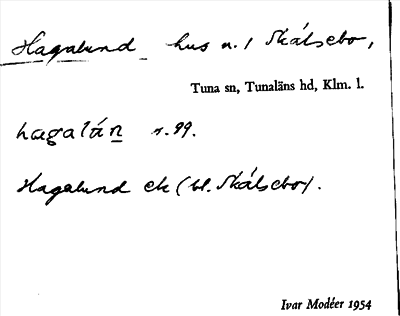 Hagalund hus n. l Skálsebo,
Tuna sn, Tunaläns hd, Klm. l.
hagalán s. 99.
Hagalund ek (bl. Skálsebo).
Ivar Modéer 1954